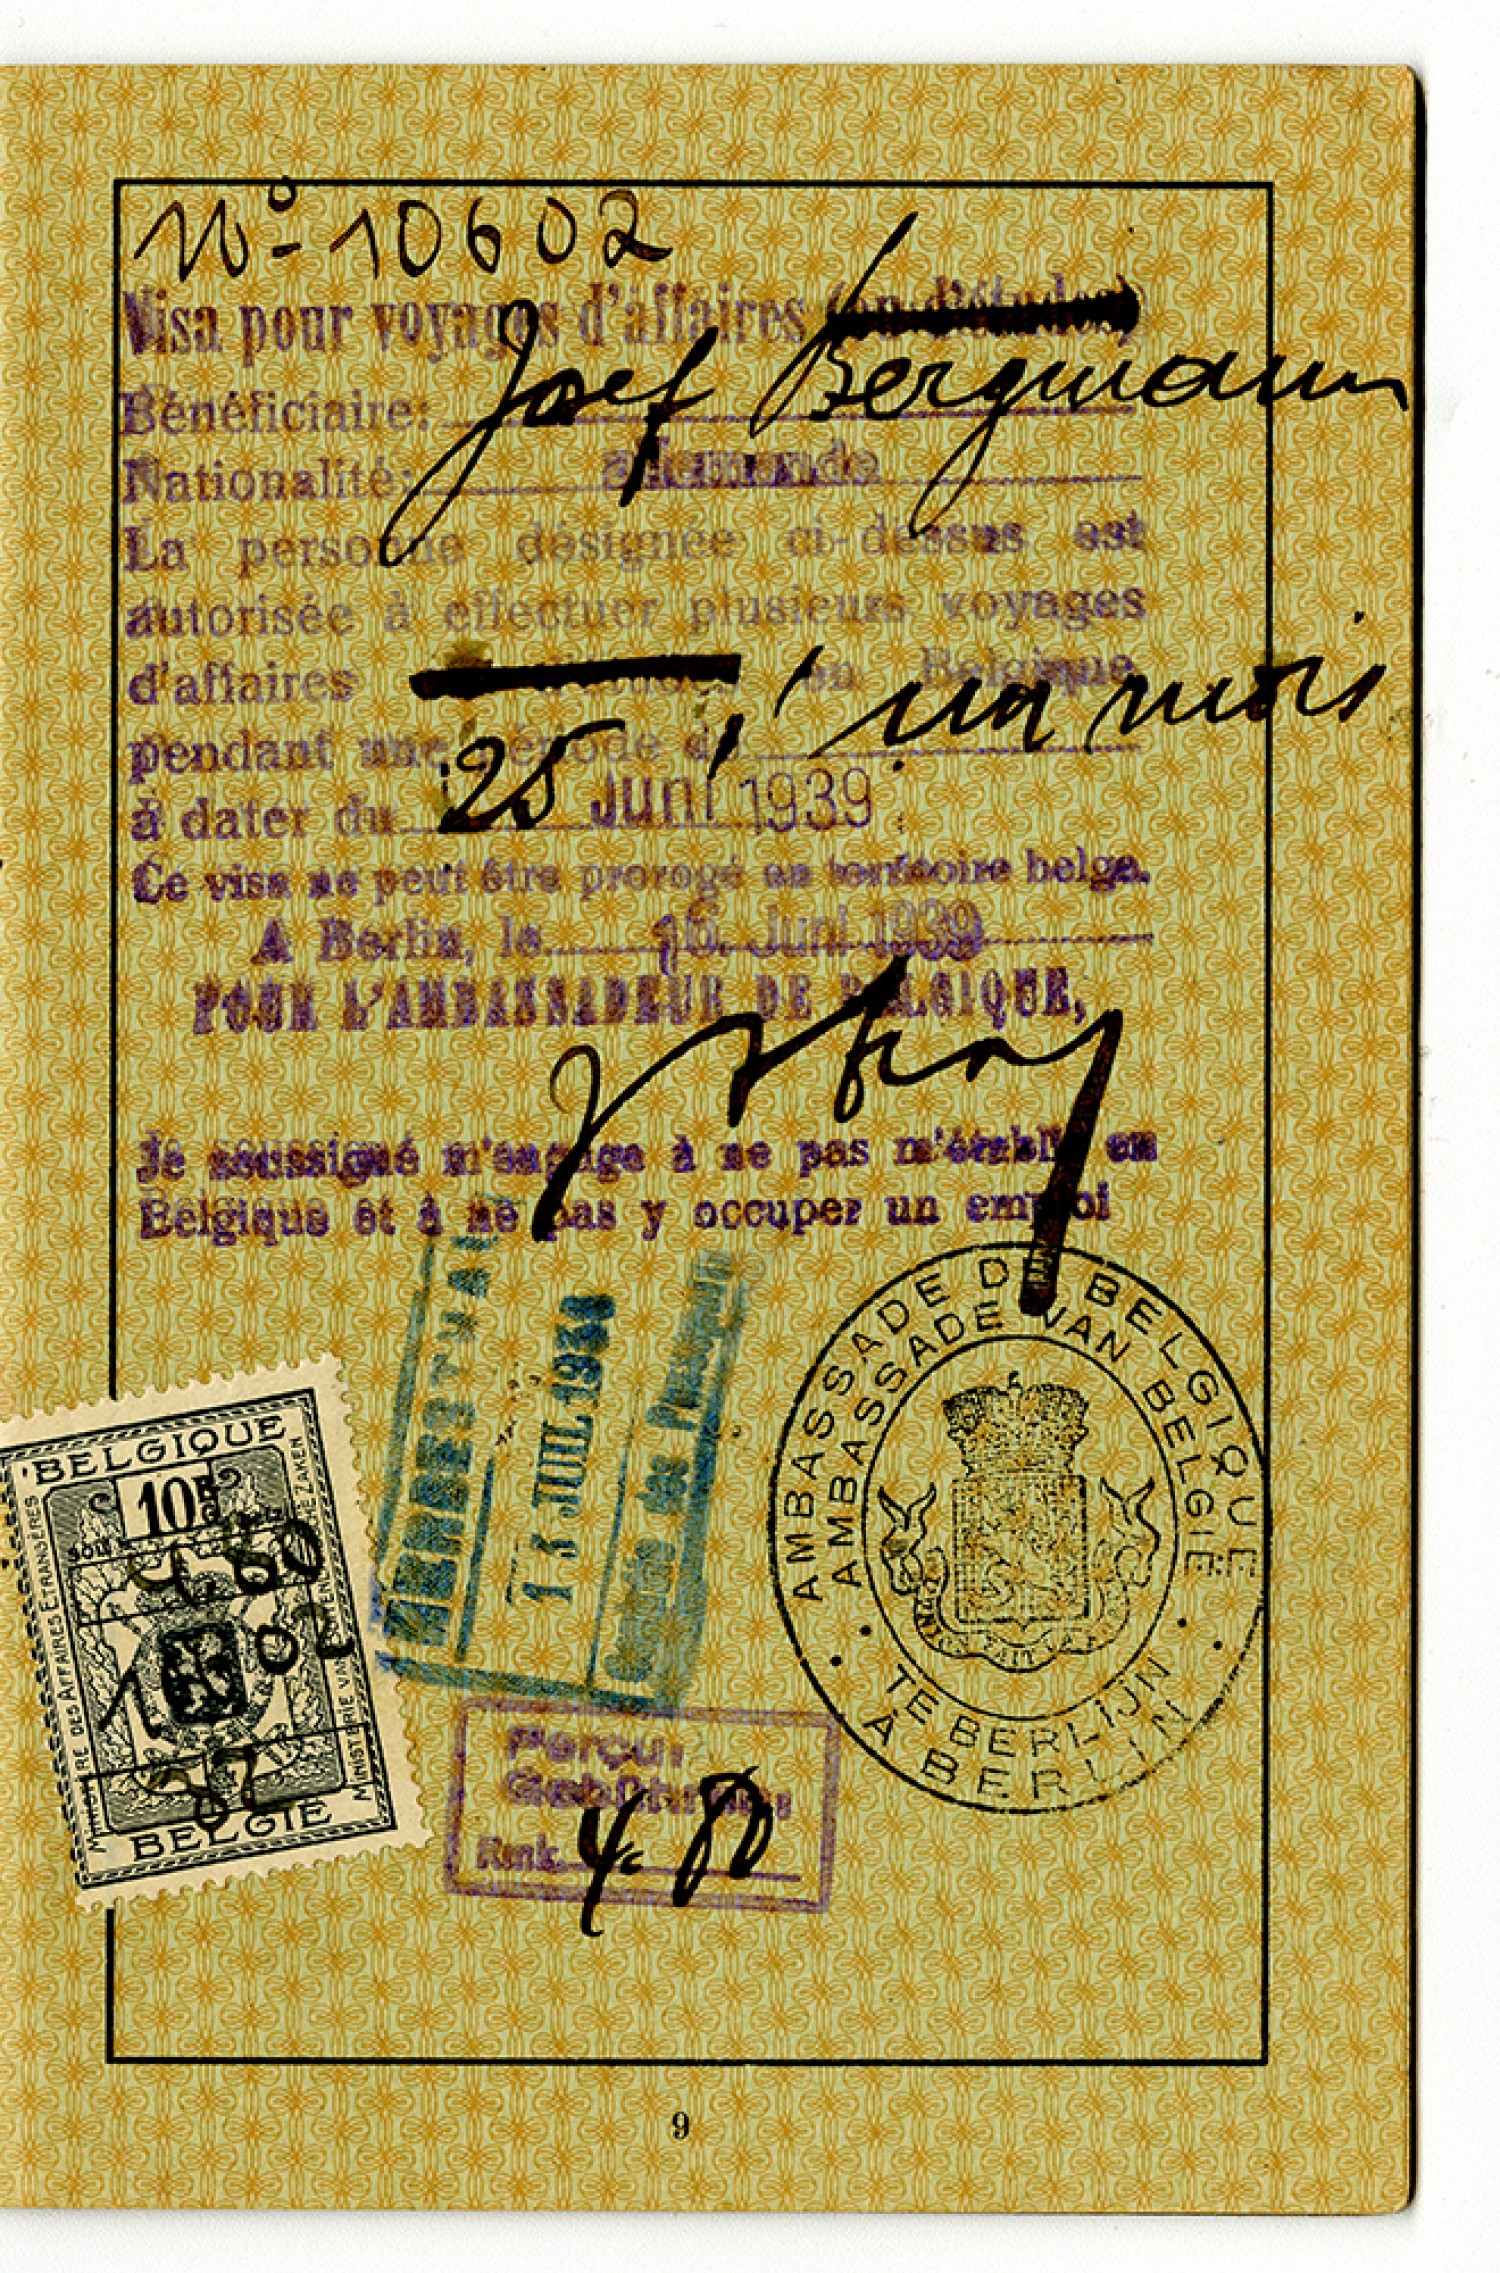 No 10602
Visa pour voyages d'affaires (ou d'études)
Bénéficiaire: Josef Bergmann
Nationalité: allemande
La personne désignée ci-dessus est
autorisée à effectuer plusieurs voyages
d'affaires d'études en Belgique
pendant une période d' un mois
à dater du 25 Juni 1939
Ce visa ne peut être prorogé en territoire belge.
A Berlin, le 16. Juni 1939
POUR L'AMBASSADEUR DE BELGIQUE,
Je soussigné m'engage à ne pas m'établir en
Belgique et à ne pas y occuper un emploi
HERBESTHAL
13 JUIL 193
Contrôle des Passeports
AMBASSADE DE BELGIQUE
AMBASSADE VAN BELGIË
TE BERLIJN
À BERLIN
BELGIQUE
10F
MINISTÈRE DES AFFAIRES ETRANGÈRES
MINISTERIE VAN BUITENLANDSCHE ZAKEN
4.80
BELGIË
Perçu:
Gebühren:
Rmk. 4.80
9